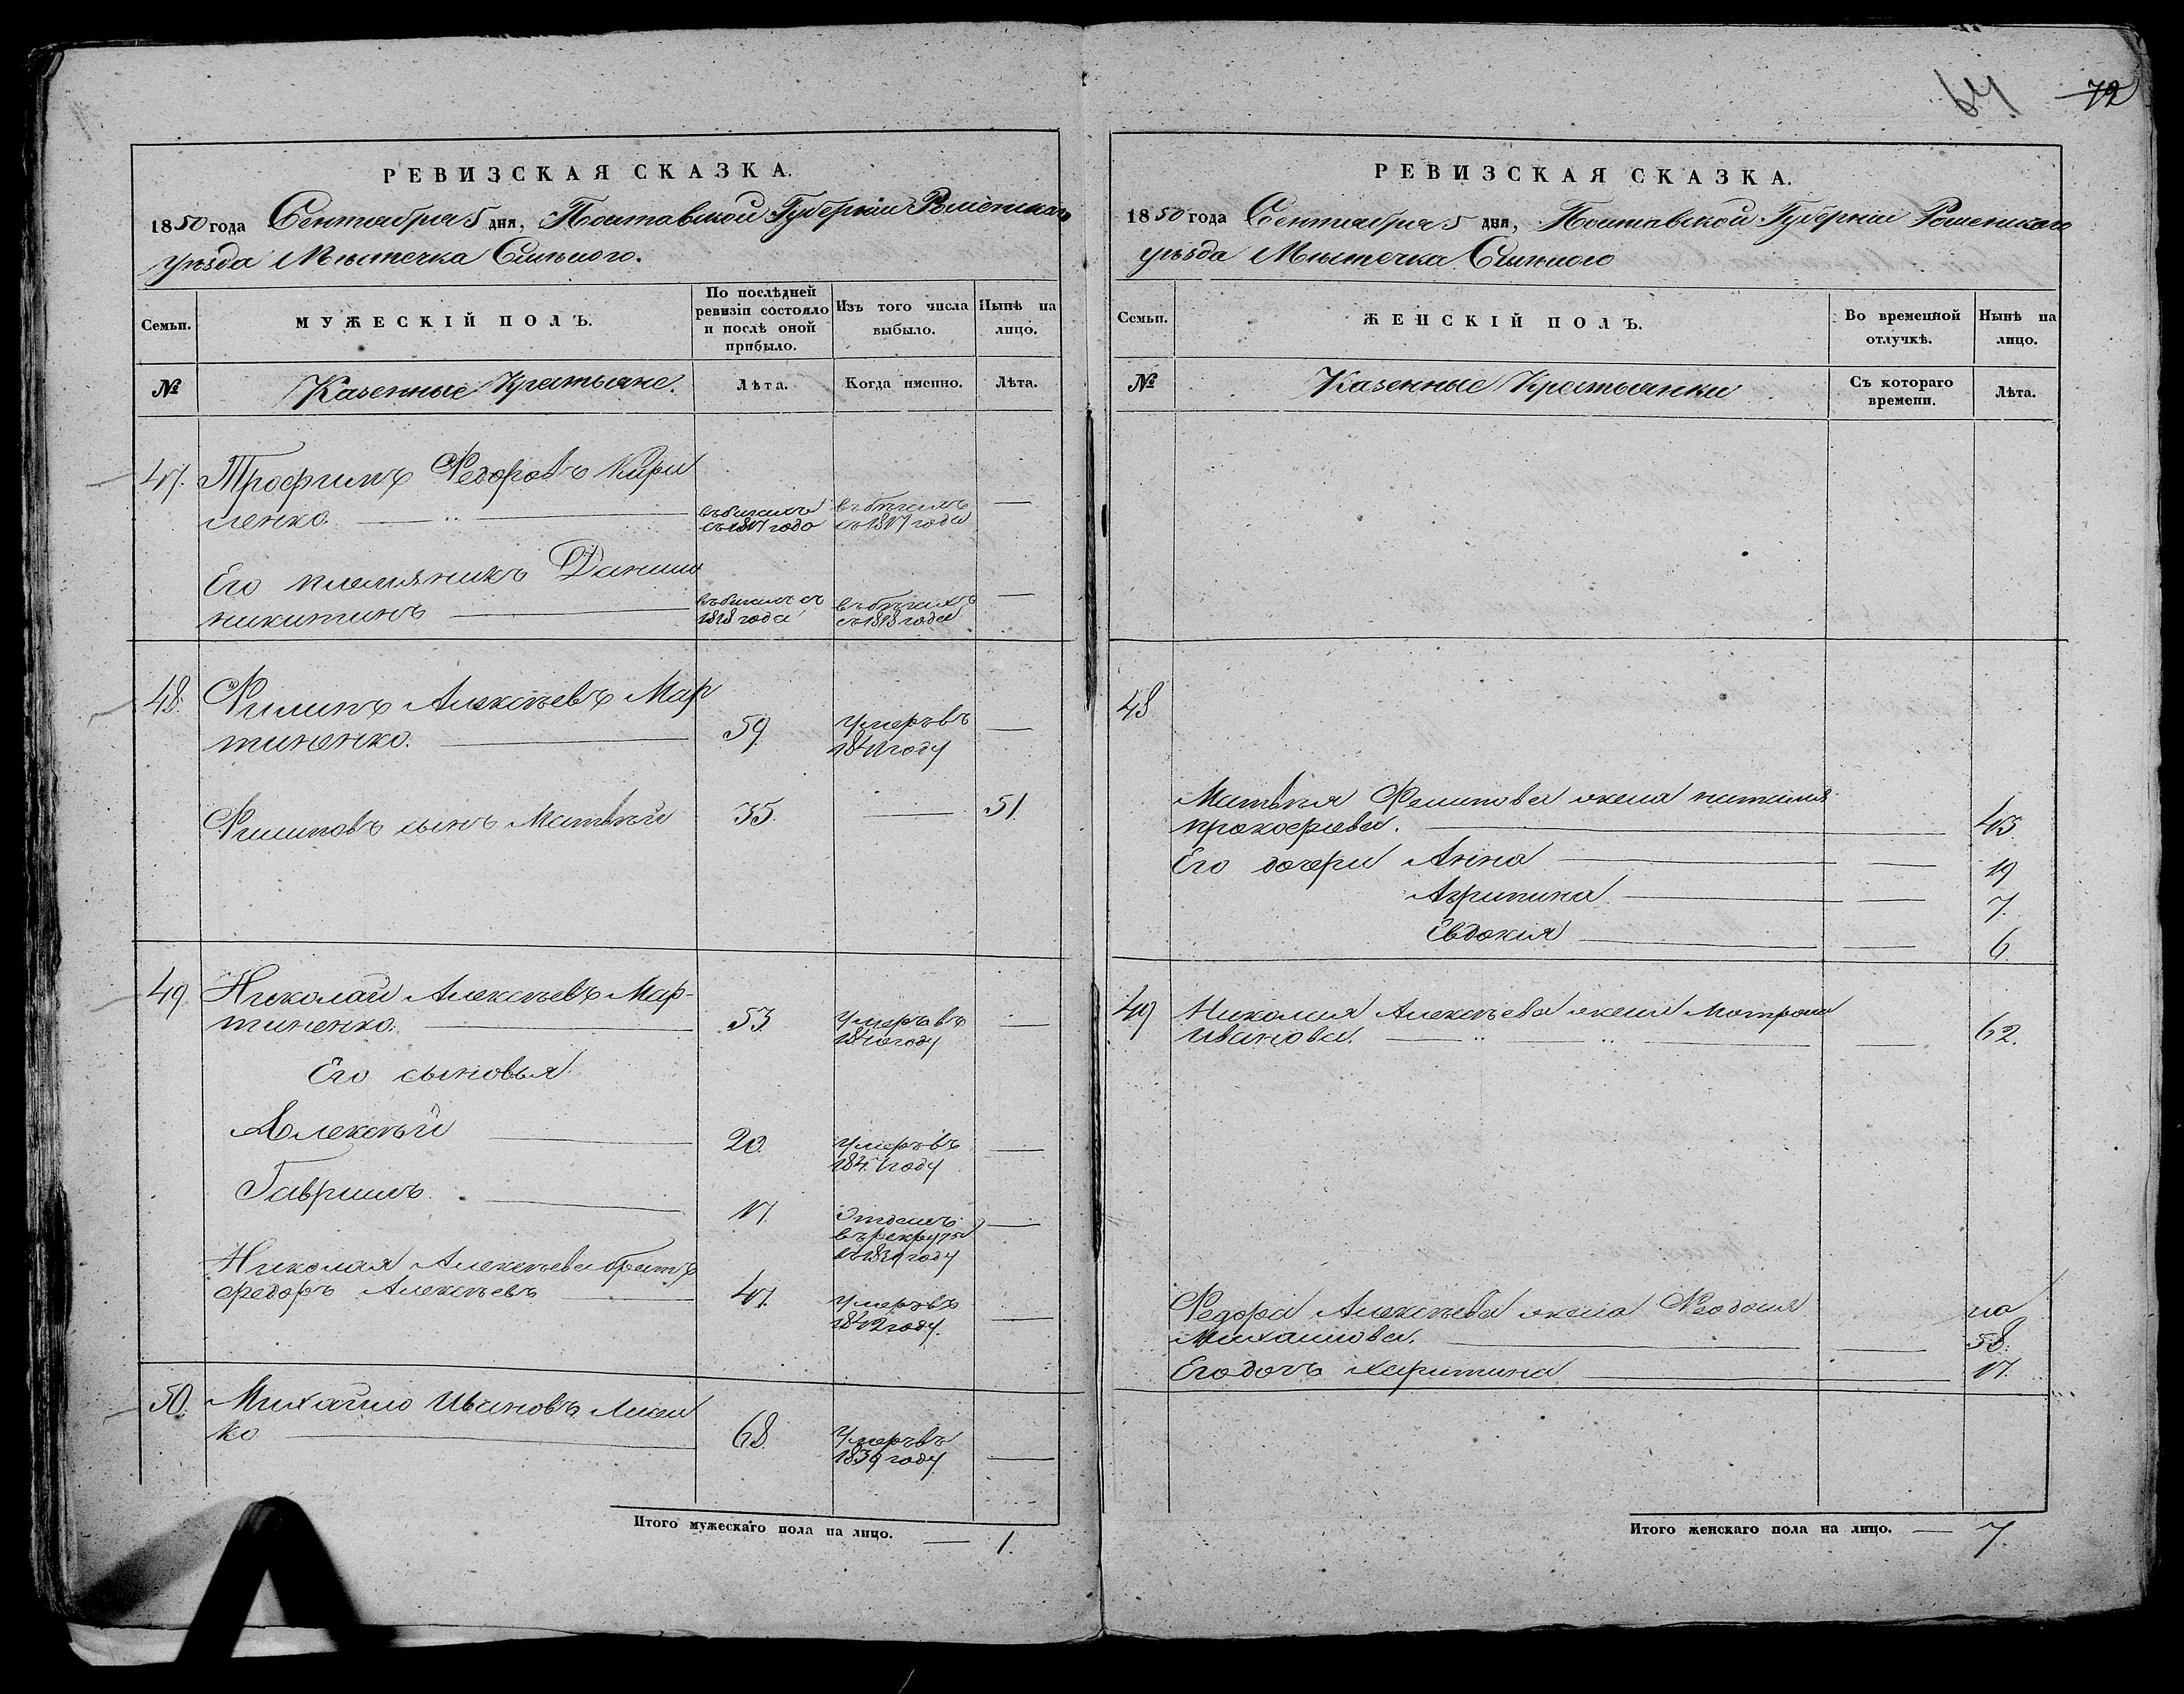 64 72
РЕВИЗСКАЯ СКАЗКА.
1850 года Сентября 5 дня, Полтавской Губерніи Роменскаго
уѣзда Мѣстечка Смѣлого.
Семьи.
МУЖЕСКІЙ ПОЛЪ.
По послѣдней
ревизіи состояло
и послѣ оной
прибыло.
Изъ того числа
выбыло.
Нынѣ на
лицо.
№
Казенные Крестьяне.
Лѣта.
Когда именно.
Лѣта.
47. Трофимъ Федоровъ Кири
ленко
въ бѣгахъ
съ 1817 года
въ бѣгахъ
съ 1817 года
Его племяникъ Данило
никитинъ
въ бѣгахъ съ
1818 года
въ бѣгахъ
съ 1818 года
48. Филипъ Алексѣевъ Мар
тиненко.
59.
Умеръ въ
1841 году
Филиповъ сынъ Матвѣй 35. 51.
49. Николай Алексѣевъ Мар-
тиненко.
53.
Умеръ въ
1840 году
Его сыновья
Алексѣй 20.
Умеръ въ
184 году
Гавриилъ. 17.
Отданъ
въ рекруты
въ 1831 году
Николая Алексѣева братъ
федоръ Алексѣевъ
47.
Умеръ въ
1842 году.
50. Михайло Ивановъ
ко
68.
Умеръ въ
1839 году
Итого мужескаго пола на лицо. — 1.
РЕВИЗСКАЯ СКАЗКА.
1850 года Сентября 5 дня, Полтавской Губерніи Роменскаго
уѣзда Мѣстечка Смѣлого
Семьи.
ЖЕНСКІЙ ПОЛЪ.
Во временной
отлучкѣ.
Нынѣ на
лицо.
№
Казенные Крестьянки
Съ котораго
времени.
Лѣта.
48
Матвѣя Филипова жена наталия
прокофиева. 43.
Его дочери Анна 19
Агрипина 7.
Евдокия 6.
49 Николая Алексѣева жена Матрона
Иванова. 62.
Федора Алексѣева жена Феодосия
Михаилова. 58.
Его дочь харитина 17.
Итого женскаго пола на лицо. — 7.